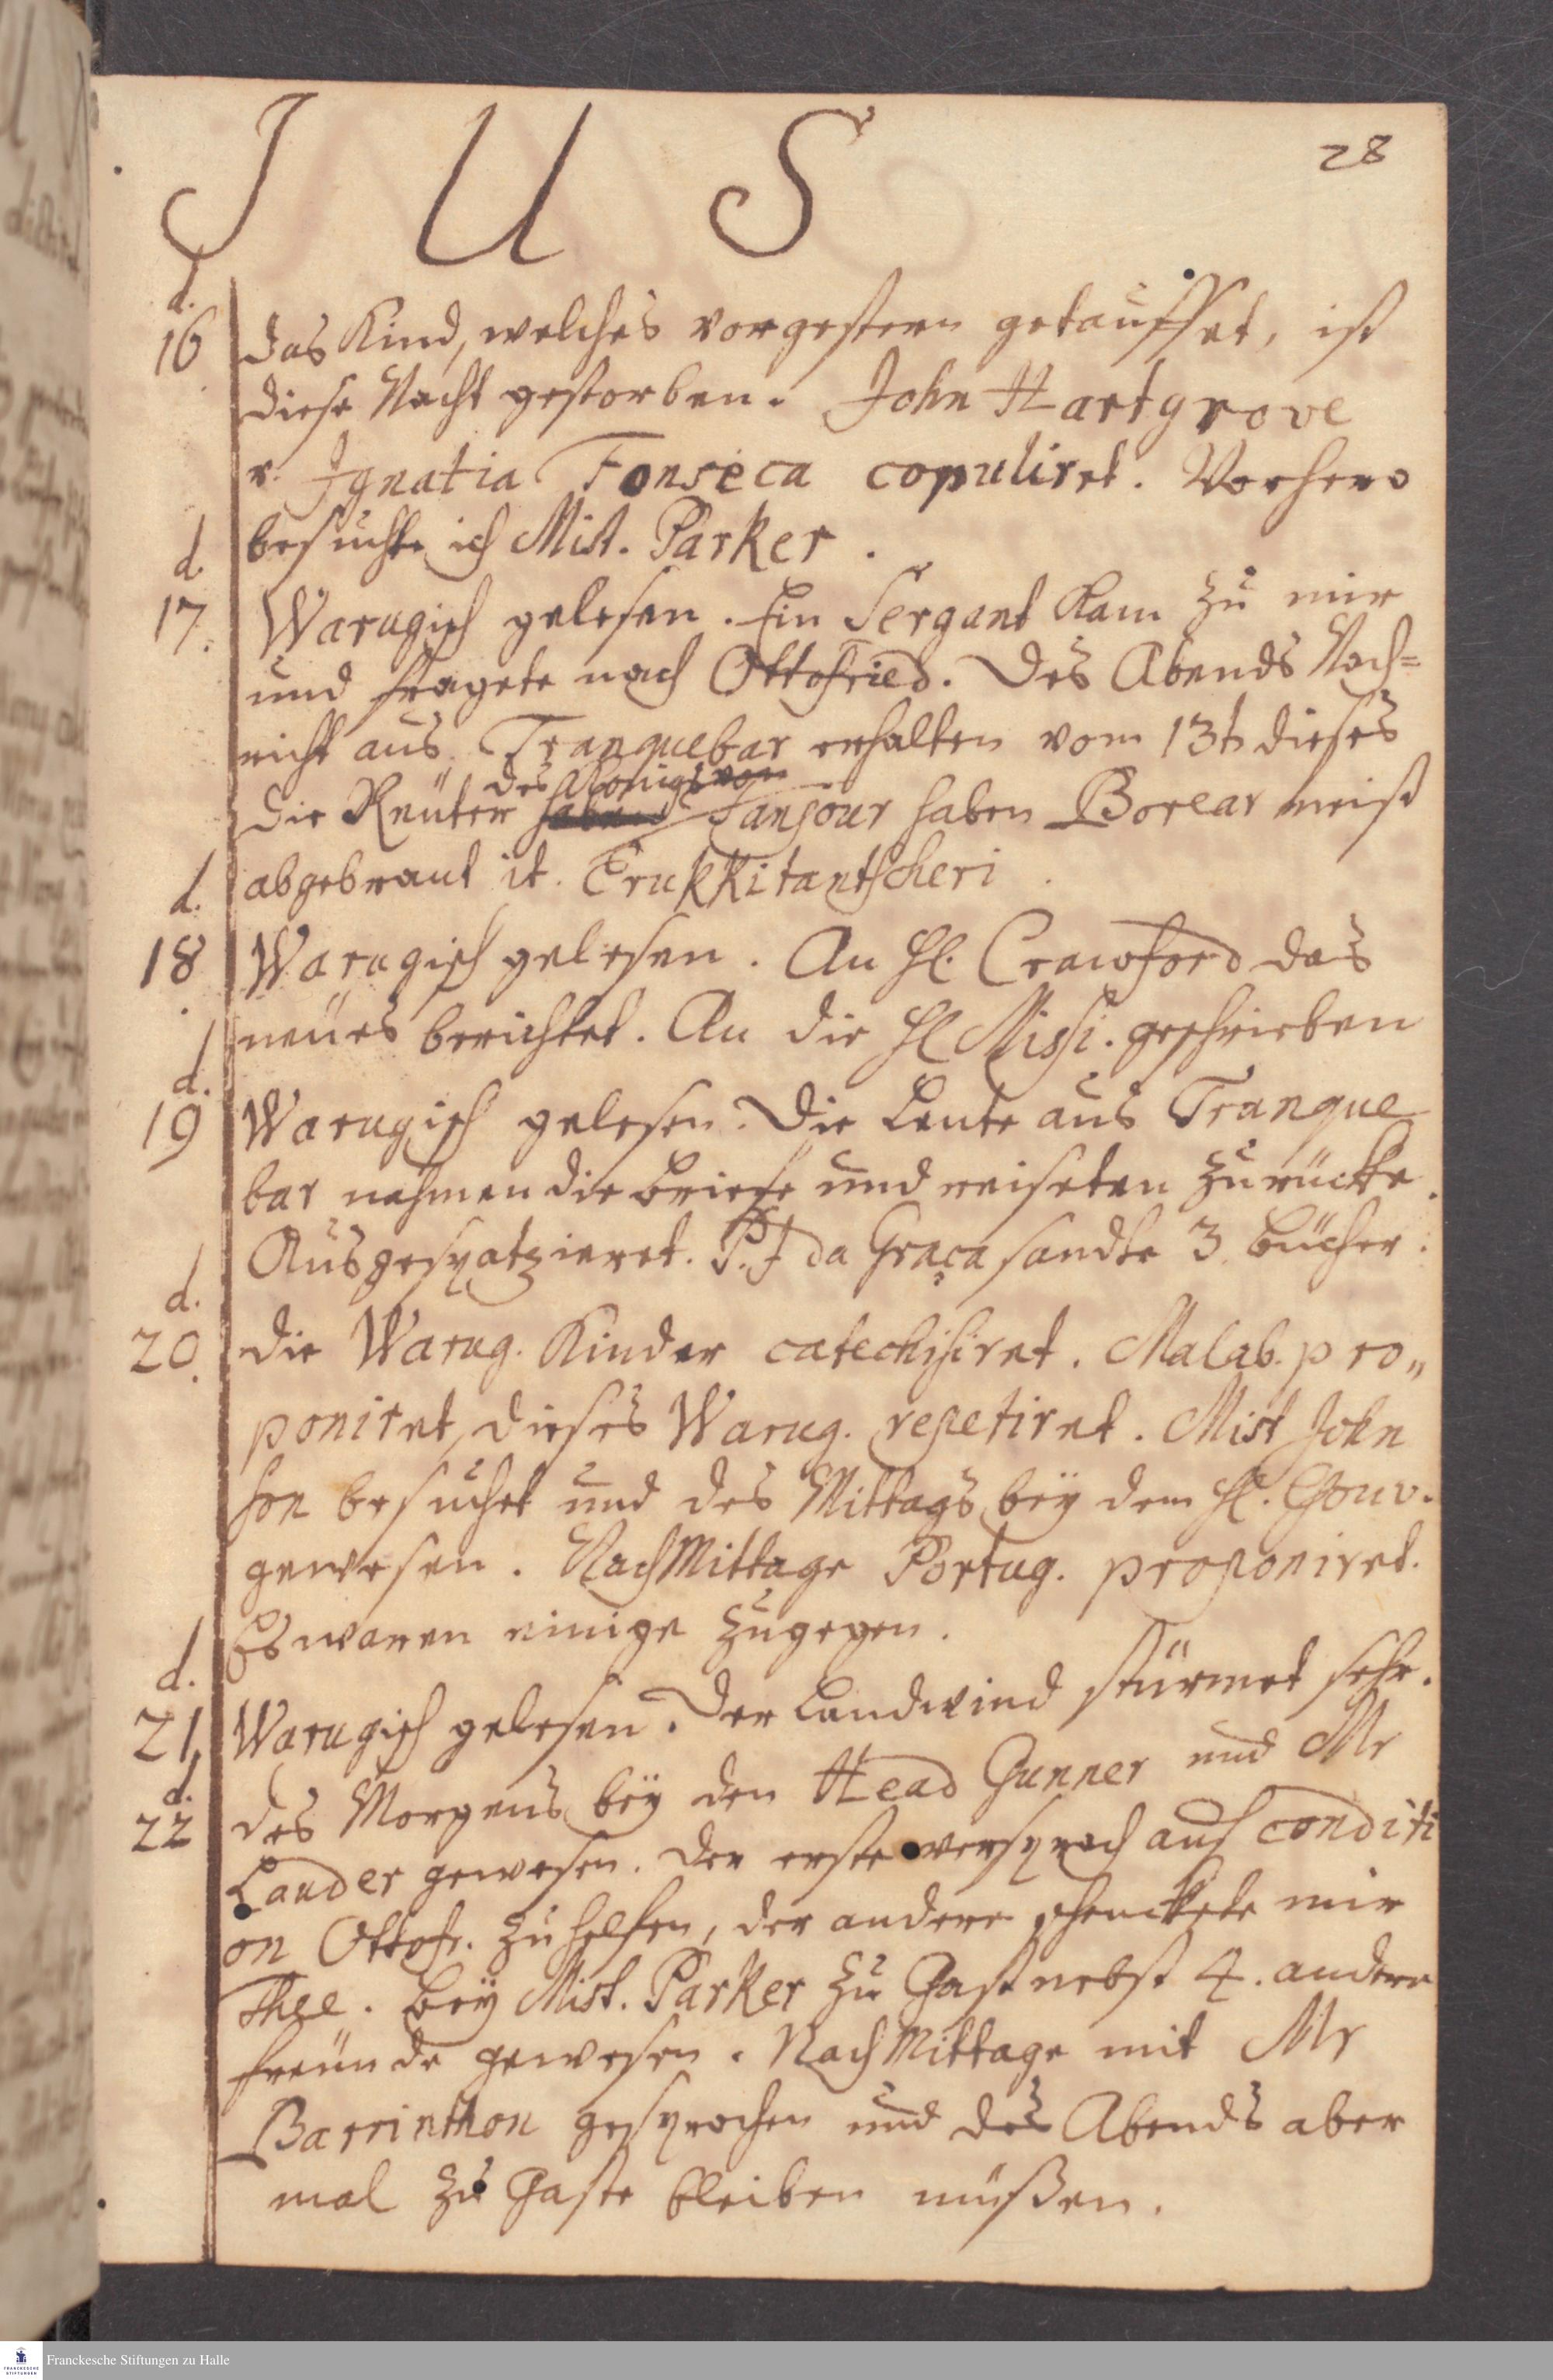 J U S
28
d.
16 das Kind, welches vorgestern getauffet, ist
diese Nacht gestorben. John Hartgrove
v. Ignatia Fonseca copuliret. Vorhero
besuchte ich Mist. Parker.
d.
17. Warugisch gelesen. Ein Sergant kam zu mir
und fragete nach Ottofried. Des Abends Nach=
richt aus Tranquebar erhalten vom 13t dieses
des Königs von
Die Reuter haben Tanjour haben Borear meist
abgebrant it. Erukkitantscheri.
d.
18 Warugisch gelesen. An H. Crawford das
neues berichtet. An die H Missi. geschrieben
d.
19 Warugisch gelesen. Die Leute aus Tranque
bar nahmen die Briefe und reiseten zurücke.
Ausgespatzieret. P. J da Graça sandte 3 Bücher.
d.
20. die Warug. Kinder catechisiret. Malab. pro„
poniret, dieses Warug. repetiret. Mist John
son besuchet und des Mittags bey dem H. Gouv.
gewesen. NachMittage Portug. proponiret.
Es waren einige zugegen.
d.
21, Warugisch gelesen. Der Landwind stürmet sehr.
d.
22 des Morgens bey den Head Gunner und Mr
Lauder gewesen. Der erste versprach auf conditi
on Ottofr. zu helfen, der andere schenckete mir
Thee. Bey Mist. Parker zu Gast nebst 4. andere
freunde gewesen. NachMittage mit Mr
Barrinthon gesprochen und des Abends aber
mal zu Gaste bleiben müßen.
Franckesche Stiftungen zu Halle
FRANCKESCHE STIFTUNGEN